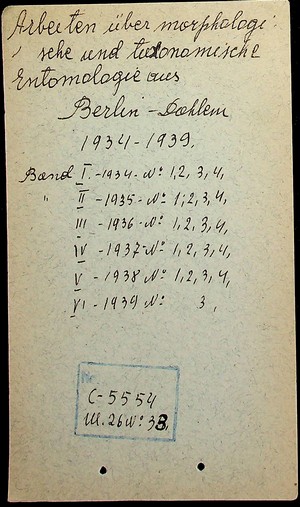 Arbeiten über morphologi-
sche und taxonomische
Entomologie aus
Berlin - Dahlem
1934-1939.
Band I. -1934- № 1,2,3,4,
" II -1935- № 1,2,3,4,
III -1936- № 1,2,3,4,
IV -1937- № 1,2,3,4,
V -1938 № 1,2,3,4,
VI -1939 № 3,
Nr.
C-5554
Ш. 26 № 33,